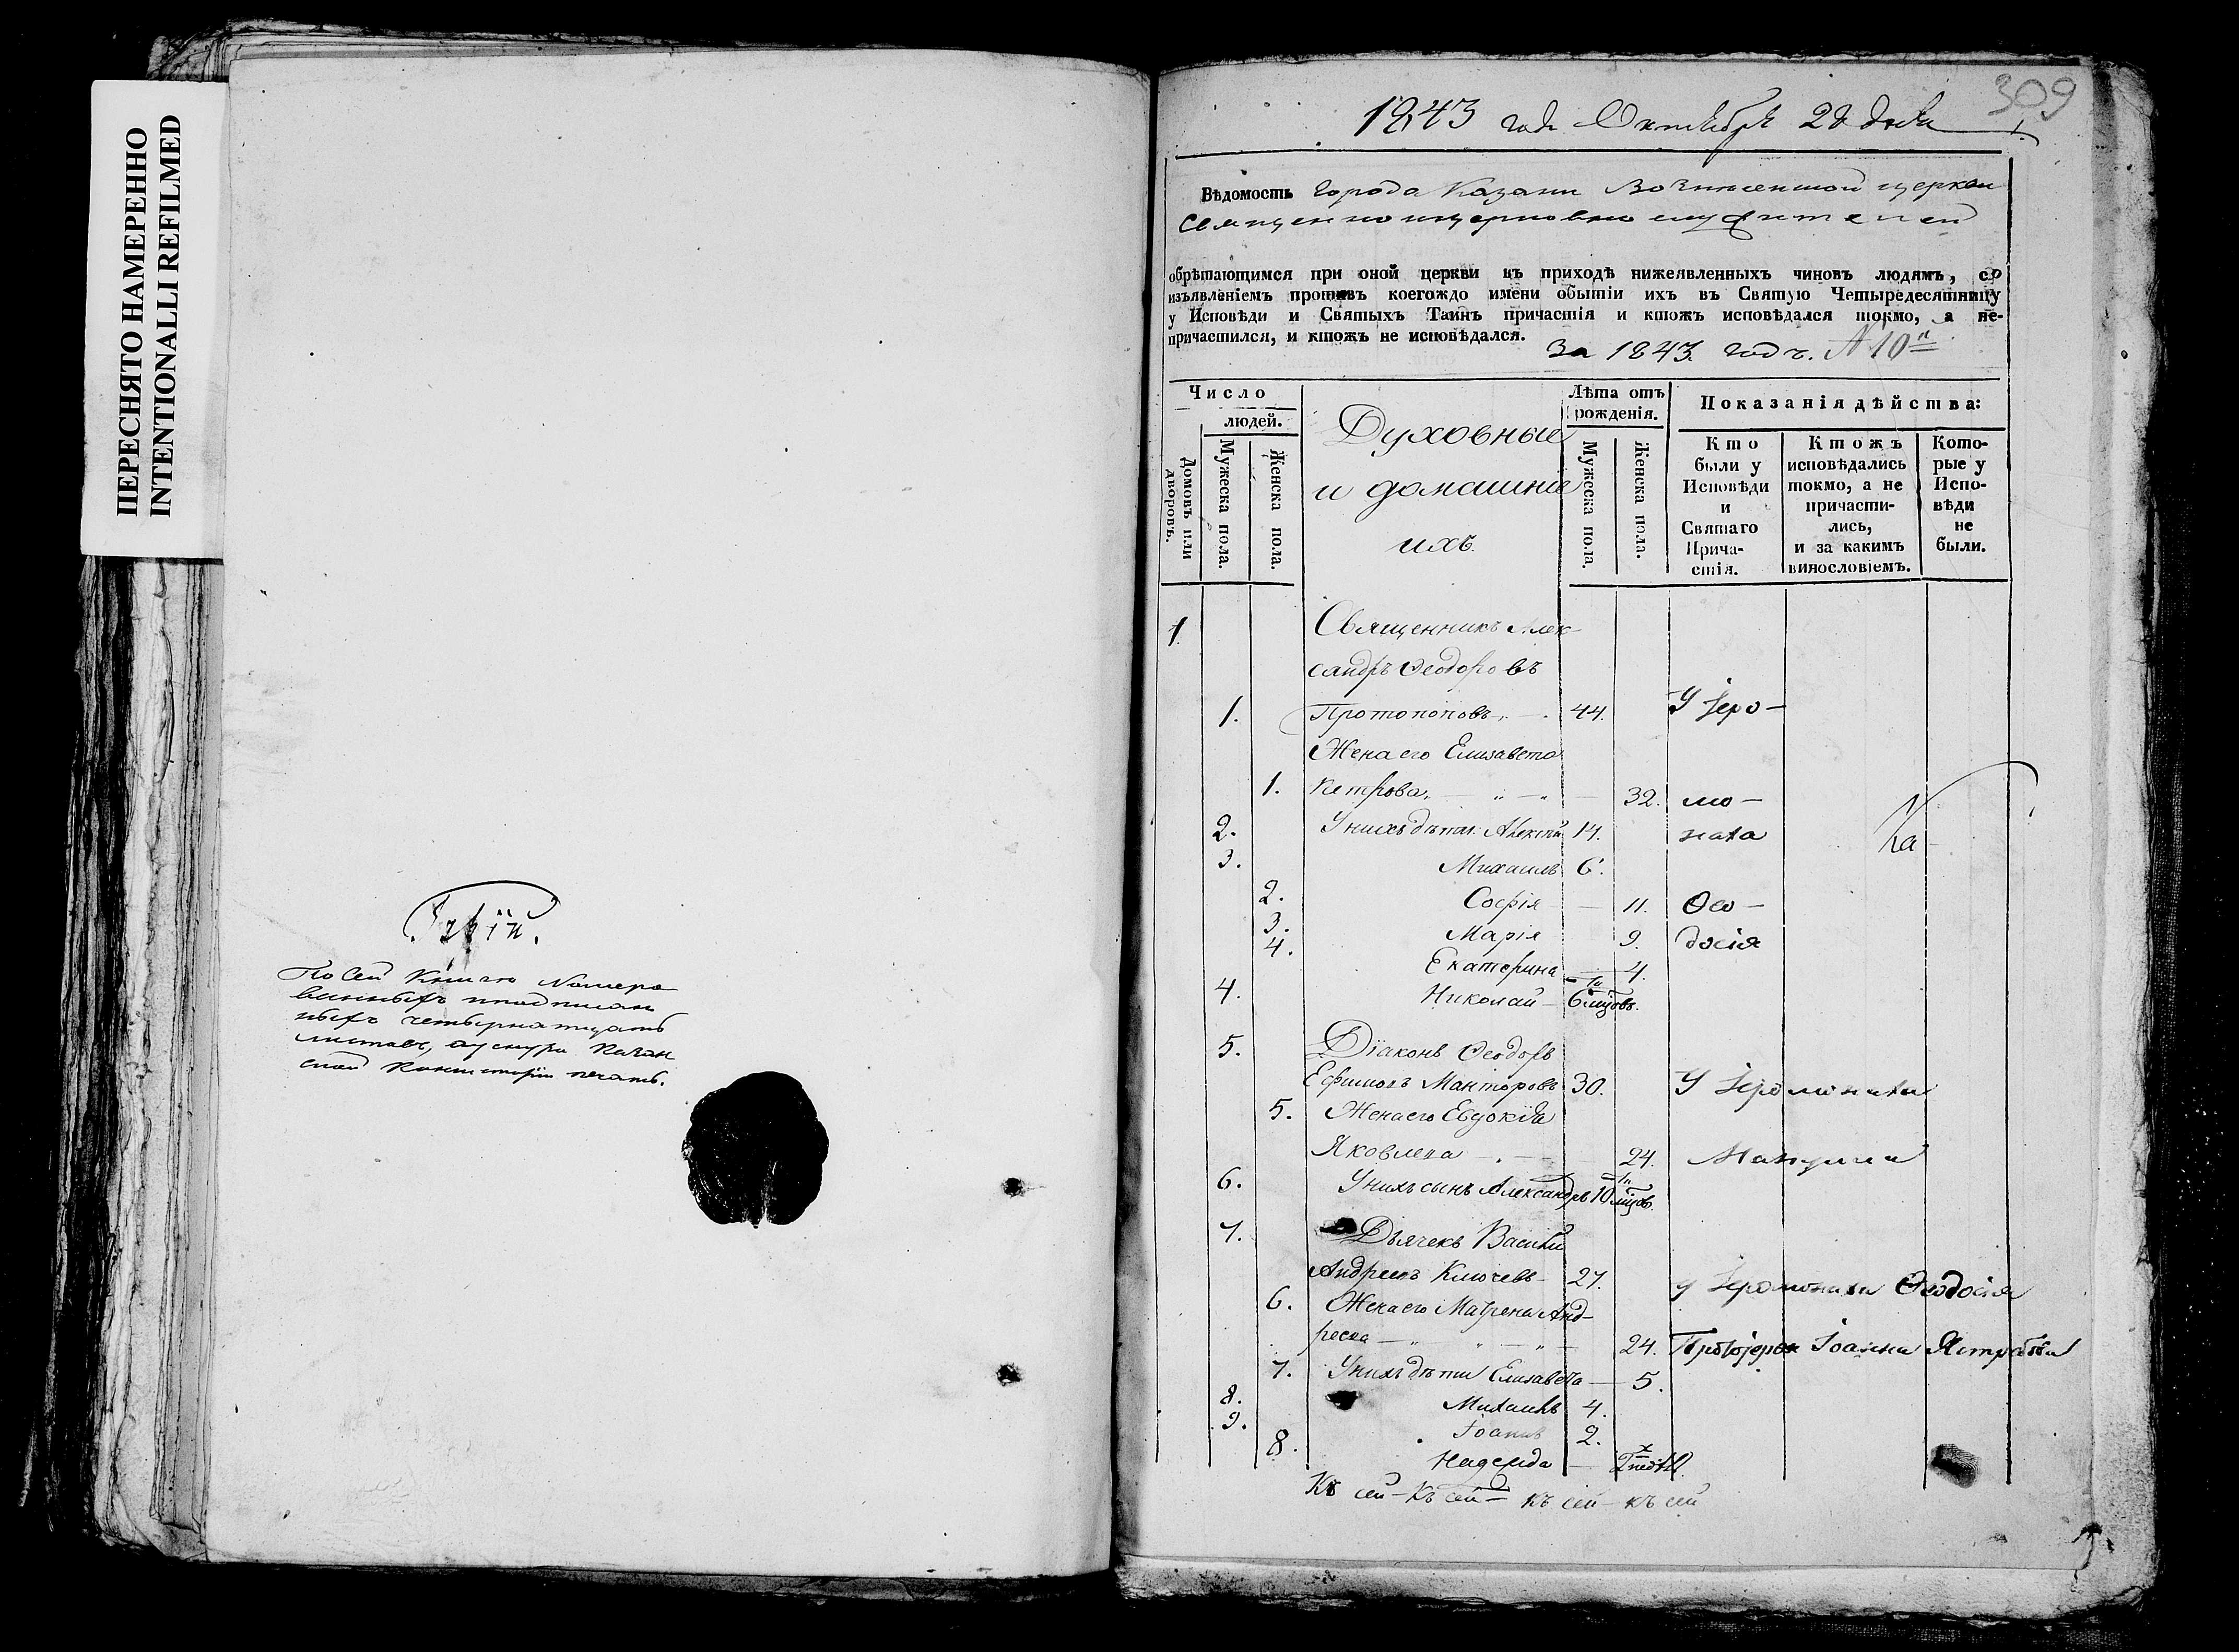 ПЕРЕСНЯТО НАМЕРЕННО
INTENTIONALLI REFILMED
По сей книге Номеро
ванныхъ и подписан
ныхъ четырнатцать
листовъ, Казан
ской Консисторіи печать.
309
1843 года Октября 20 дня
Вѣдомость города Казани Вознесенской церкви
священно и церковно служителей
обрѣтающимся при оной церкви въ приходѣ нижеявленныхъ чиновъ людямъ, со
изъявленіемъ противъ коегождо имени обытіи ихъ въ Святую Четыредесятницу
у Исповѣди и Святыхъ Таинъ причастія и ктожъ исповѣдался токмо, а не-
причастился, и ктожъ не исповѣдался.
За 1843 годъ. № 10й
Число
людей.
Домовъ или дворовъ.
Мужеска пола.
Женска пола.
Духовные
и домашніе
ихъ.
Лѣта отъ
рожденія.
Мужеска пола.
Женска пола.
Показанія дѣйства:
Кто
были у
Исповѣди
и
Святаго
Прича-
стія.
Ктожъ
исповѣдались
токмо, а не
причасти-
лись,
и за какимъ
винословіемъ.
Кото-
рые у
Испо-
вѣди
не
были.
1 Священникъ Алек-
сандръ Ѳеодоровъ
1. Протопоповъ 44. У Іеро-
Жена его Елизавета
1. Петрова 32. мо-
2. У нихъ дѣти Алексѣй 14. наха
3. Михаилъ 6.
2. Софія 11. Ѳео-
3. Марія 9. досія
4. Екатерина 4.
4. Николай 6 мцовъ.
5. Діаконъ Ѳеодоръ
Ефимовъ Манторовъ 30. У Іеромонаха
5. Жена его Евдокія
Яковлева 24.
6. У нихъ сынъ Александръ 10 мцовъ.
7. Дьячекъ Василій
Андреевъ Ключевъ 27. у Іеромонаха Ѳеодосія
6. Жена его Матрена Анд-
реева 24. Протоіерея Іоанна Ястребова
7. У нихъ дѣти Елизавета 5.
8. Михаилъ 4.
9. Іоаннъ 2.
8. Надежда 2 недѣл.
Къ сей - Къ сей - къ сей - къ сей